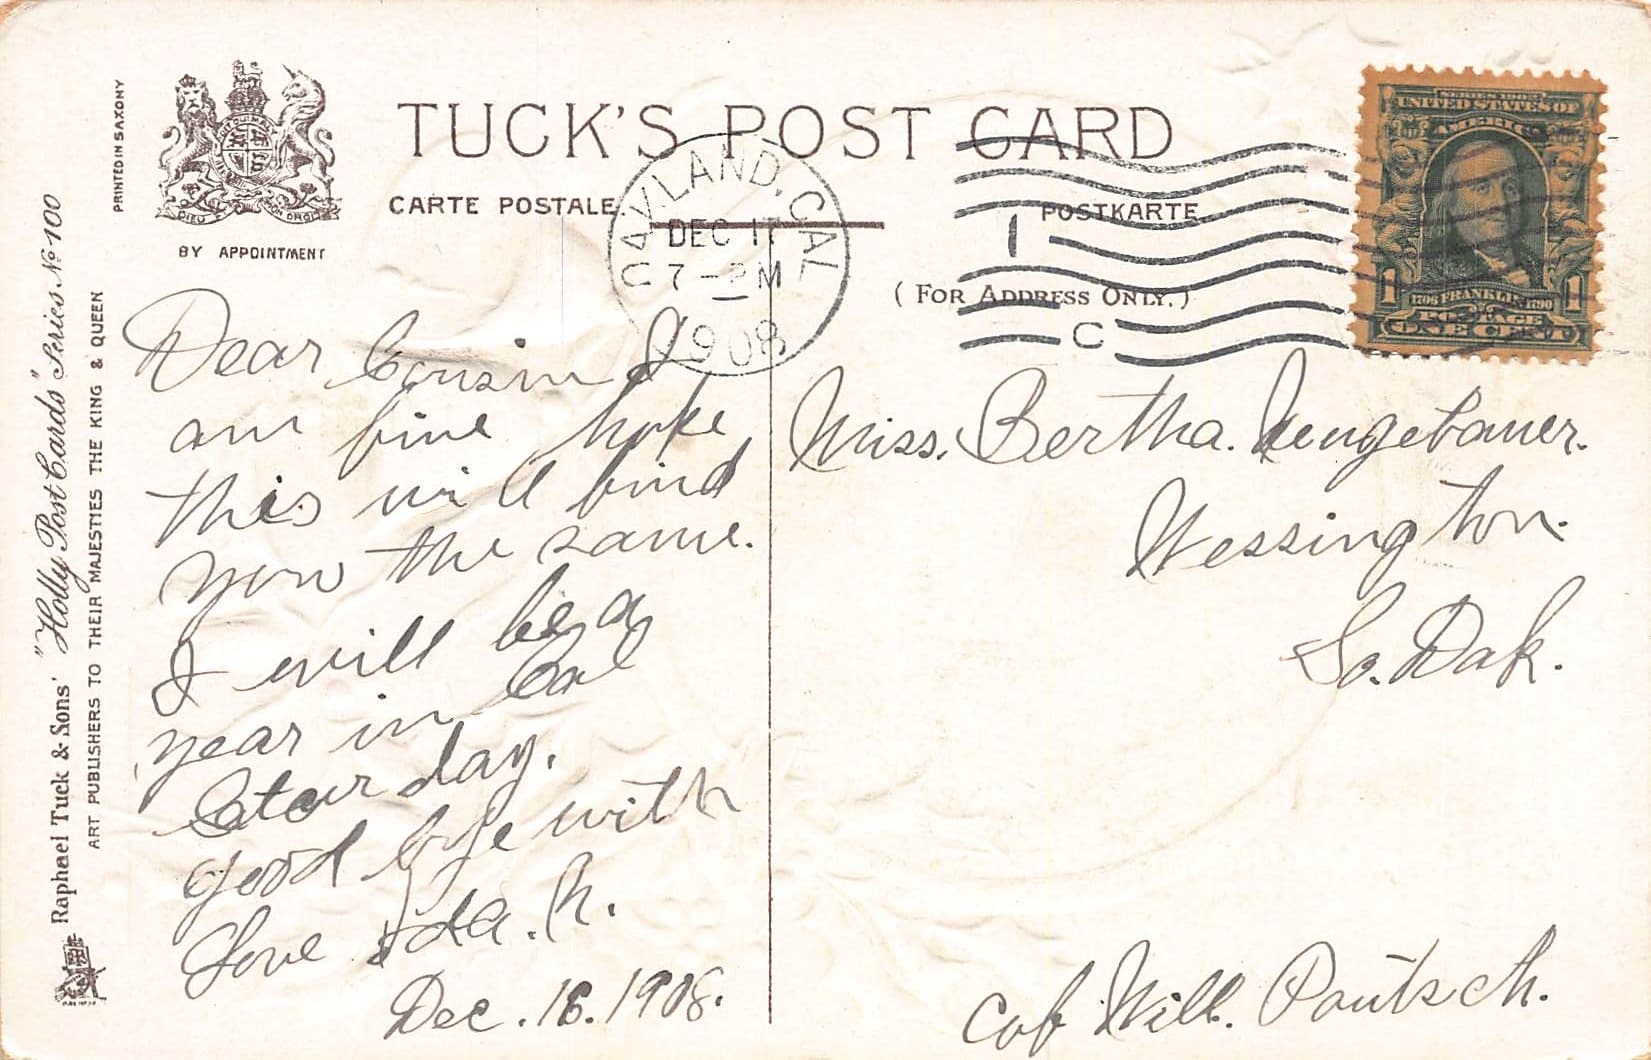 TUCK'S POST CARD
CARTE POSTALE
POSTKARTE
(FOR ADDRESS ONLY.)
PRINTED IN SAXONY
DIEU ET MON DROIT
BY APPOINTMENT
Raphael Tuck & Sons' "Holly Post Cards" Series No 100
ART PUBLISHERS TO THEIR MAJESTIES THE KING & QUEEN
OAKLAND, CAL
DEC 17
7 - PM
1908
1
C
SERIES 1902
UNITED STATES OF
AMERICA
1 1
1706 FRANKLIN 1790
POSTAGE
ONE CENT
Dear Cousin I
am fine hope
this will find
you the same.
I will be a
year in Cal
Saturday.
good bye with
love Ida. N.
Dec. 16. 1908.
Miss. Bertha.
Wessington.
So. Dak.
C of Will.